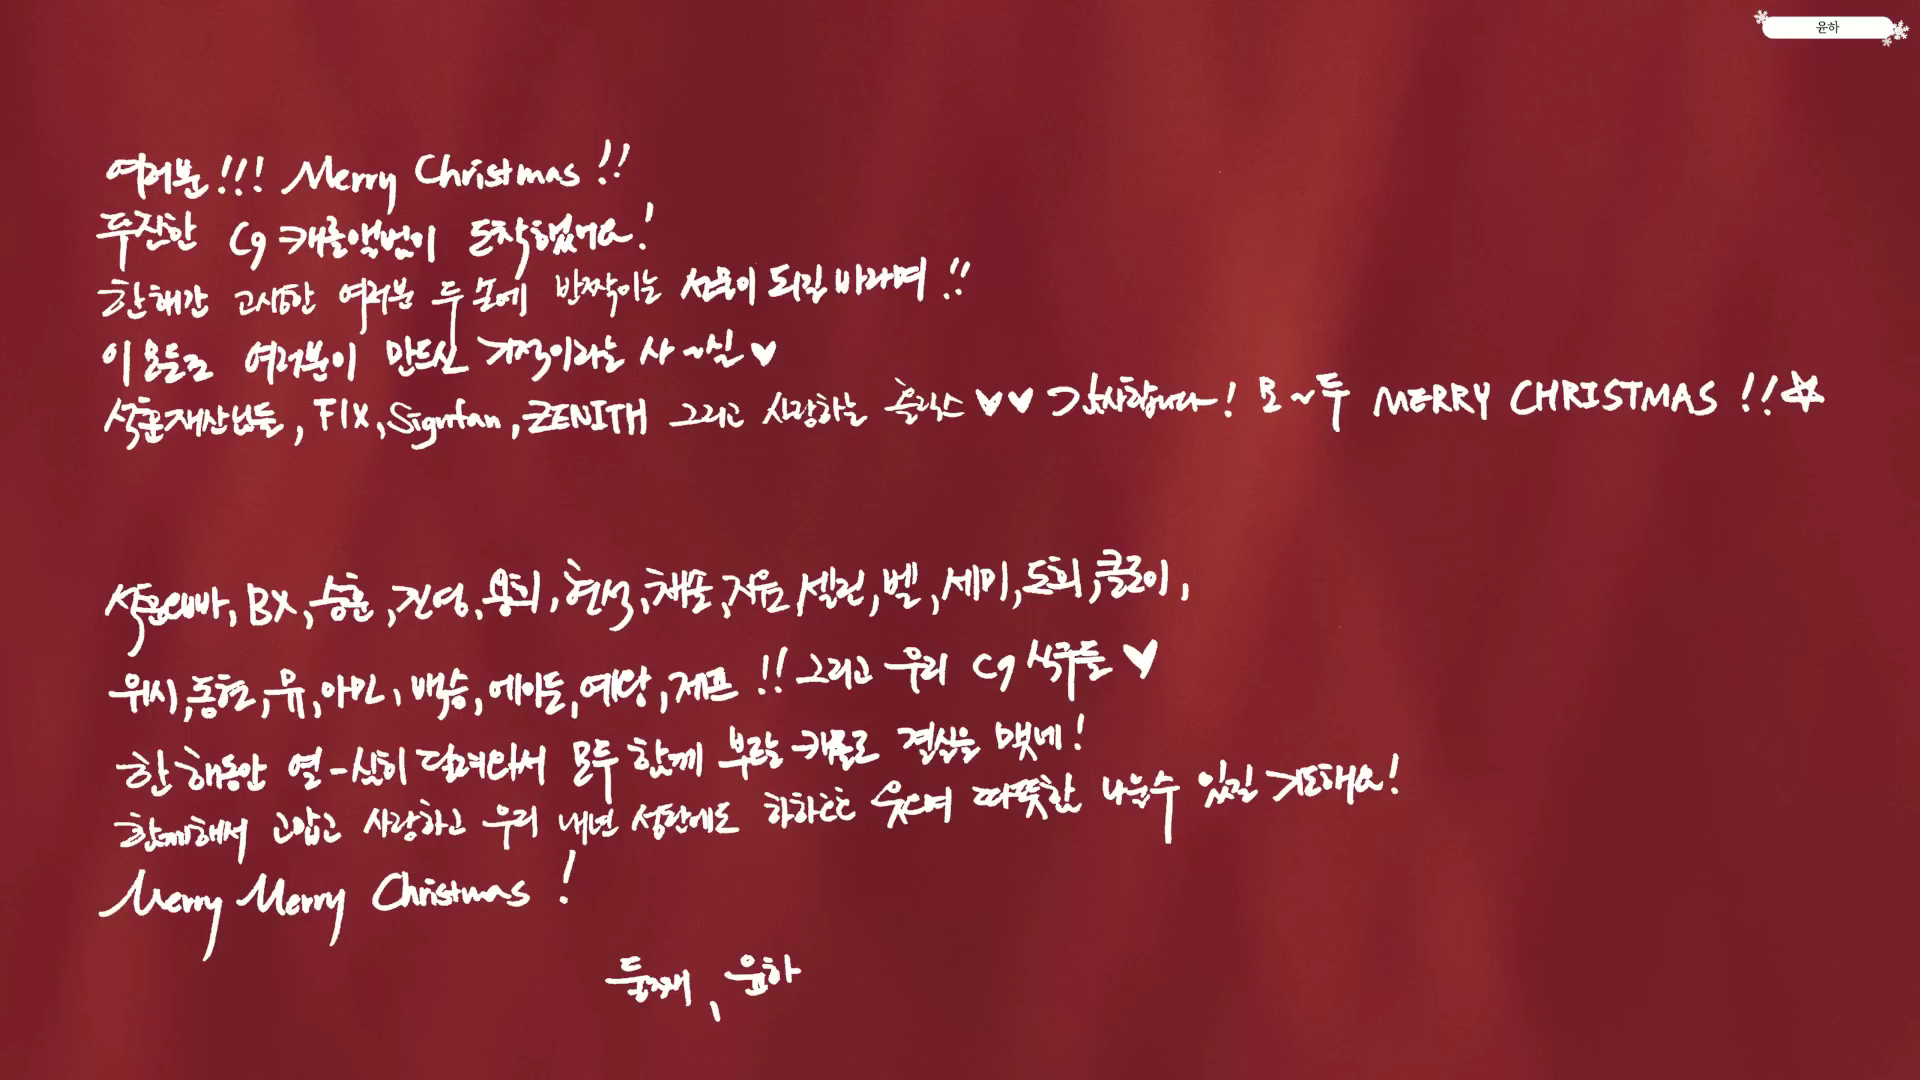 윤하
여러분!!! Merry Christmas!!
푸진한 C9 캐롤앨범이 도착했어요!
한해간 고생한 여러분 두 손에 반짝이는 선물이 되길 바라며!!
이 용들도 여러분이 만드신 기적이라는 사~실♥
석훈재산님들, FIX, Signfan, ZENITH 그리고 사랑하는 홀릭스♥♥ 감사합니다! 모~두 MERRY CHRISTMAS!!☆
석훈오빠, BX, 승훈, 진영, 용희, 현석, 채솔, 지윤, 셀린, 벨, 세미, 도희, 클로이,
위시, 동현, 유, 아민, 백승, 에이든, 예당, 제프!! 그리고 우리 C9 식구들♥
한 해동안 열-심히 달려와서 모두 함께 부르는 캐롤로 결실을 맺네!
함께해서 고맙고 사랑하고 우리 내년 성탄에도 하하호호 웃으며 따뜻함 나눌수 있길 기도해요!
Merry Merry Christmas!
둘째, 윤하